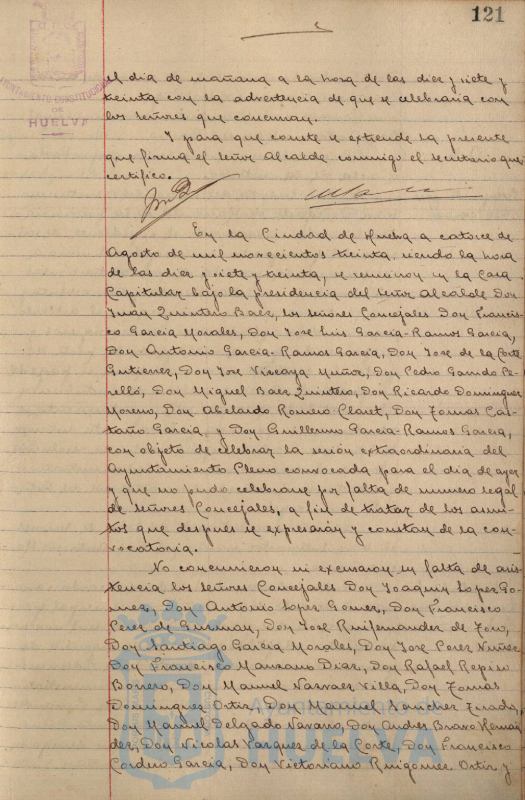 121
AYUNTAMIENTO CONSTITUCIONAL
DE
HUELVA
el dia de mañana a la hora de las diez y siete y
treinta con la advertencia de que se celebraria con
los señores que concurran.
Y para que conste se extiende la presente
que firma el señor Alcalde conmigo el secretario que
certifico.
En la Ciudad de Huelva a catorce de
Agosto de mil novecientos treinta, siendo la hora
de las diez y siete y treinta, se reunieron en la Casa
Capitular bajo la presidencia del Señor Alcalde Don
Juan Quintero Baez, los señores Concejales Don Francis-
co Garcia Morales, Don Jose Luis Garcia-Ramos Garcia,
Don Antonio Garcia-Ramos Garcia, Don Jose de la Corte
Gutierrez, Don Jose Vizcaya Muñoz, Don Pedro Garrido Pe-
relló, Don Miguel Baez Quintero, Don Ricardo Dominguez
Moreno, Don Abelardo Romero Claret, Don Tomas Cas-
taño Garcia y Don Guillermo Garcia-Ramos Garcia,
con objeto de celebrar la sesión extraordinaria del
Ayuntamiento Pleno convocada para el dia de ayer
y que no pudo celebrarse por falta de numero legal
de señores Concejales, a fin de tratar de los asun-
tos que despues se expresarán y constan de la con-
vocatoria.
No concurrieron ni excusaron su falta de asis-
tencia los señores Concejales Don Joaquin Lopez Go-
mez, Don Antonio Lopez Gomez, Don Francisco
Perez de Guzman, Don Jose Ruifernandez de Toro,
Don Santiago Garcia Morales, Don Jose Perez Nuñez
Don Francisco Manzano Diaz, Don Rafael Repiso
Borrero, Don Manuel Narvaez Villa, Don Tomas
Dominguez Ortiz, Don Manuel Sanchez Tirado,
Don Manuel Delgado Navarro, Don Andres Bravo Hernan
dez, Don Nicolas Vazquez de la Corte, Don Francisco
Cordero Garcia, Don Victoriano Ruigomez Ortiz y
Ayuntamiento de
HUELVA